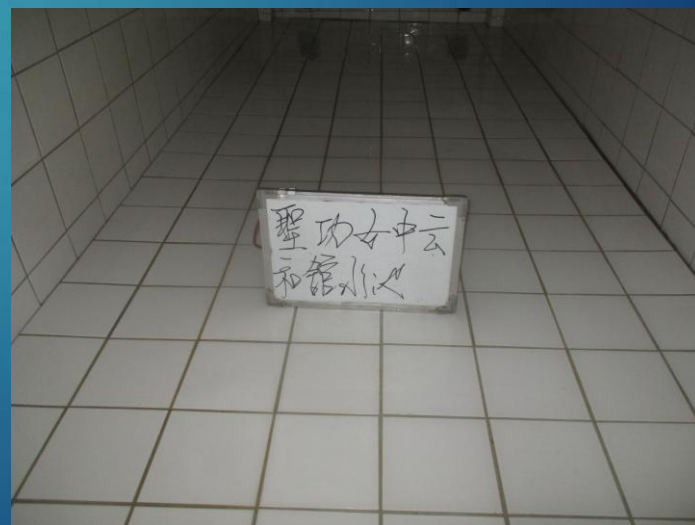 聖功女中云
和館水池